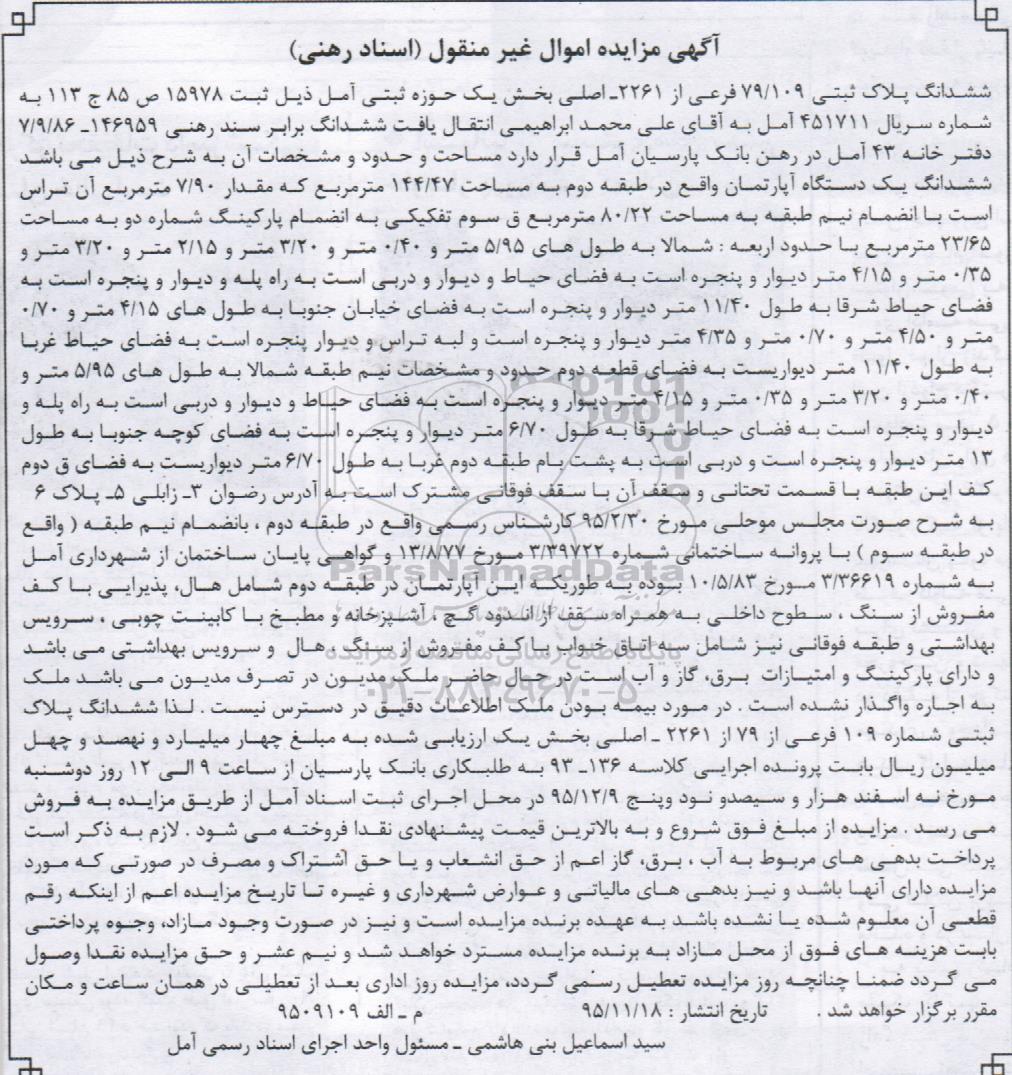 آگهی مزایده اموال غیر منقول (اسناد رهنی)
ششدانگ پلاک ثبتی ۷۹/۱۰۹ فرعی از ۲۲۶۱ـ اصلی بخش یک حوزه ثبتی آمل ذیل ثبت ۱۵۹۷۸ ص ۸۵ ج ۱۱۳ به
شماره سریال ۴۵۱۷۱۱ آمل به آقای علی محمد ابراهیمی انتقال یافت ششدانگ برابر سند رهنی ۱۴۶۹۵۹ـ ۷/۹/۸۶
دفتر خانه ۴۳ آمل در رهن بانک پارسیان آمل قرار دارد مساحت و حدود و مشخصات آن به شرح ذیل می باشد
ششدانگ یک دستگاه آپارتمان واقع در طبقه دوم به مساحت ۱۴۴/۴۷ مترمربع که مقدار ۷/۹۰ مترمربع آن تراس
است با انضمام نیم طبقه به مساحت ۸۰/۲۲ مترمربع ق سوم تفکیکی به انضمام پارکینگ شماره دو به مساحت
۲۳/۶۵ مترمربع با حدود اربعه : شمالا به طول های ۵/۹۵ متر و ۰/۴۰ متر و ۳/۲۰ متر و ۲/۱۵ متر و ۳/۲۰ متر و
۰/۳۵ متر و ۴/۱۵ متر دیوار و پنجره است به فضای حیاط و دیوار و دربی است به راه پله و دیوار و پنجره است به
فضای حیاط شرقا به طول ۱۱/۴۰ متر دیوار و پنجره است به فضای خیابان جنوبا به طول های ۴/۱۵ متر و ۰/۷۰
متر و ۴/۵۰ متر و ۰/۷۰ متر و ۴/۳۵ متر دیوار و پنجره است و لبه تراس و دیوار پنجره است به فضای حیاط غربا
به طول ۱۱/۴۰ متر دیواریست به فضای قطعه دوم حدود و مشخصات نیم طبقه شمالا به طول های ۵/۹۵ متر و
۰/۴۰ متر و ۳/۲۰ متر و ۰/۳۵ متر و ۴/۱۵ متر دیوار و پنجره است به فضای حیاط و دیوار و دربی است به راه پله و
دیوار و پنجره است به فضای حیاط شرقا به طول ۶/۷۰ متر دیوار و پنجره است به فضای کوچه جنوبا به طول
۱۳ متر دیوار و پنجره است و دربی است به پشت بام طبقه دوم غربا به طول ۶/۷۰ متر دیواریست به فضای ق دوم
کف این طبقه با قسمت تحتانی و سقف آن با سقف فوقانی مشترک است به آدرس رضوان ۳ـ زابلی ۵ـ پلاک ۶
به شرح صورت مجلس موحلی مورخ ۹۵/۲/۳۰ کارشناس رسمی واقع در طبقه دوم ، بانضمام نیم طبقه ( واقع
در طبقه سوم ) با پروانه ساختمانی شماره ۳/۳۹۷۲۲ مورخ ۱۳/۸/۷۷ و گواهی پایان ساختمان از شهرداری آمل
به شماره ۳/۳۶۶۱۹ مورخ ۱۰/۵/۸۳ بوده به طوریکه این آپارتمان در طبقه دوم شامل هال، پذیرایی با کف
مفروش از سنگ ، سطوح داخلی به همراه سقف از اندود گچ ، آشپزخانه و مطبخ با کابینت چوبی ، سرویس
بهداشتی و طبقه فوقانی نیز شامل سه اتاق خواب با کف مفروش از سنگ ، هال و سرویس بهداشتی می باشد
و دارای پارکینگ و امتیازات برق، گاز و آب است در حال حاضر ملک مدیون در تصرف مدیون می باشد ملک
به اجاره واگذار نشده است . در مورد بیمه بودن ملک اطلاعات دقیق در دسترس نیست . لذا ششدانگ پلاک
ثبتی شماره ۱۰۹ فرعی از ۷۹ از ۲۲۶۱ ـ اصلی بخش یک ارزیابی شده به مبلغ چهار میلیارد و نهصد و چهل
میلیون ریال بابت پرونده اجرایی کلاسه ۱۳۶ـ ۹۳ به طلبکاری بانک پارسیان از ساعت ۹ الی ۱۲ روز دوشنبه
مورخ نه اسفند هزار و سیصدو نود وپنج ۹۵/۱۲/۹ در محل اجرای ثبت اسناد آمل از طریق مزایده به فروش
می رسد . مزایده از مبلغ فوق شروع و به بالاترین قیمت پیشنهادی نقدا فروخته می شود . لازم به ذکر است
پرداخت بدهی های مربوط به آب ، برق، گاز اعم از حق انشعاب و یا حق اشتراک و مصرف در صورتی که مورد
مزایده دارای آنها باشد و نیز بدهی های مالیاتی و عوارض شهرداری و غیره تا تاریخ مزایده اعم از اینکه رقم
قطعی آن معلوم شده یا نشده باشد به عهده برنده مزایده است و نیز در صورت وجود مازاد، وجوه پرداختی
بابت هزینه های فوق از محل مازاد به برنده مزایده مسترد خواهد شد و نیم عشر و حق مزایده نقدا وصول
می گردد ضمنا چنانچه روز مزایده تعطیل رسمی گردد، مزایده روز اداری بعد از تعطیلی در همان ساعت و مکان
مقرر برگزار خواهد شد . تاریخ انتشار : ۹۵/۱۱/۱۸ م ـ الف ۹۵۰۹۱۰۹
سید اسماعیل بنی هاشمی ـ مسئول واحد اجرای اسناد رسمی آمل
ParsNamadData
پایگاه اطلاع رسانی مناقصه و مزایده
۰۲۱-۸۸۳۴۹۶۷۰-۵